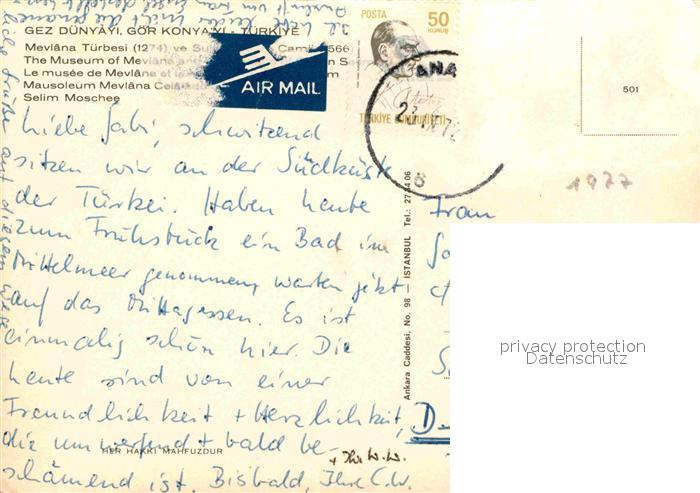 GEZ DÜNYAYI, GÖR KONYA'YI - TÜRKİYE
Mevlâna Türbesi (1274) ve Camii 566)
The Museum of Mevlâna
Le musée de Mevlâna et
Mausoleum Mevlâna
Selim Moschee
AIR MAIL
POSTA
50
KURUŞ
TÜRKİYE CUMHURİYETİ
ANA
501
1977
Liebe Gabi, schwitzend
sitzen wir an der Südküste
der Türkei. Haben heute
zum Frühstück ein Bad im
Mittelmeer genommen, warten jetzt
auf das Mittagessen. Es ist
einmalig schön hier. Die
Leute sind von einer
Freundlichkeit + Herzlichkeit,
die umwerfend + bald be-
schämend ist. Bisbald, Ihre C.W.
auf diesem Wege
HER HAKKI MAHFUZDUR
Ankara Caddesi, No. 98 — İSTANBUL Tel.: 27 44 06
Frau
D
privacy protection
Datenschutz